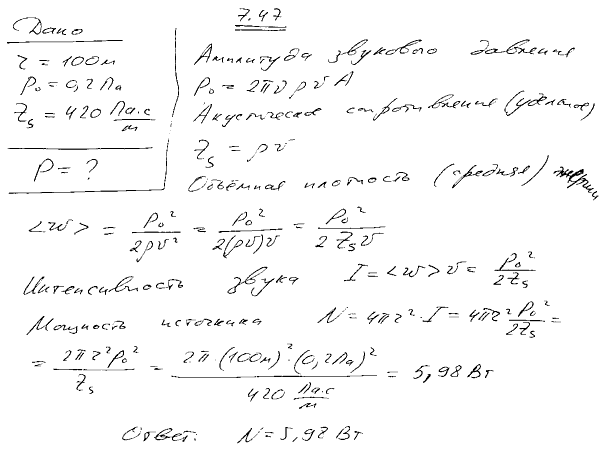 7.47
Дано
r = 100м
P₀ = 0,2Па
Z_s = 420 Па·с/м
P = ?
Амплитуда звукового давления
P₀ = 2πν ρ v A
Акустическое сопротивление (удельное)
Z_s = ρ v
Объёмная плотность (средняя) энергии
<w> = P₀²/2ρv² = P₀²/2(ρv)v = P₀²/2 Z_s v
Интенсивность звука I = <w> v = P₀²/2Z_s
Мощность источника N = 4πr²·I = 4πr² P₀²/2Z_s =
= 2πr²P₀²/Z_s = 2·π·(100м)²·(0,2Па)²/420 Па·с/м = 5,98 Вт
Ответ: N = 5,98 Вт